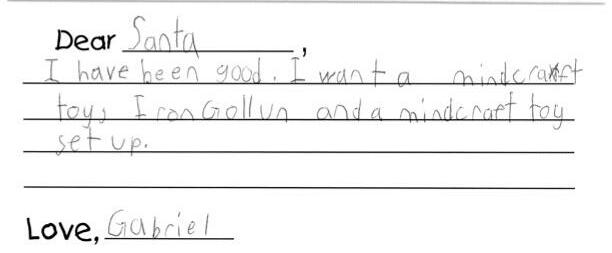 Dear Santa,
I have been good. I want a mindcraft
toy, Iron Gollun and a mindcraft toy
set up.
Love, Gabriel